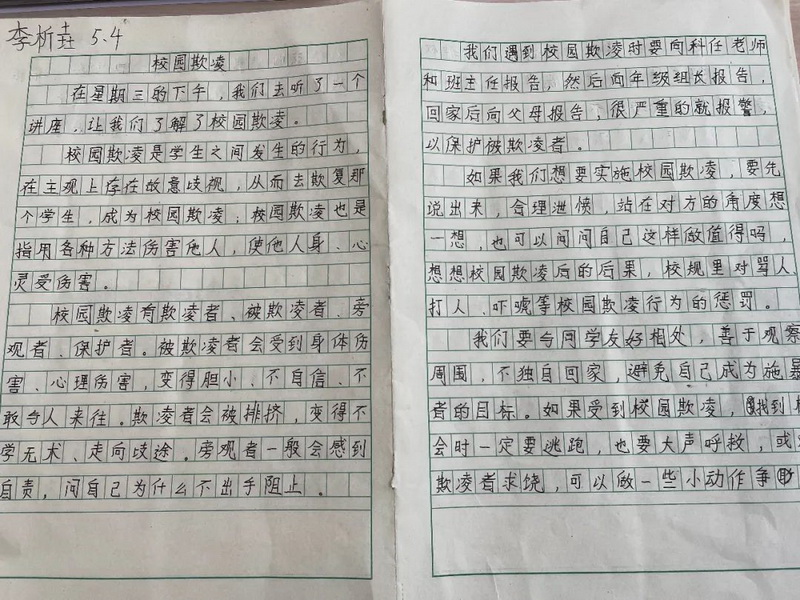 李析垚 5.4
校园欺凌
在星期三的下午，我们去听了一个
讲座，让我们了解了校园欺凌。
校园欺凌是学生之间发生的行为，
在主观上存在故意歧视，从而去欺复那
个学生，成为校园欺凌；校园欺凌也是
指用各种方法伤害他人，使他人身、心
灵受伤害。
校园欺凌有欺凌者、被欺凌者、旁
观者、保护者。被欺凌者会受到身体伤
害、心理伤害，变得胆小、不自信、不
敢与人来往。欺凌者会被排挤，变得不
学无术、走向歧途。旁观者一般会感到
自责，问自己为什么不出手阻止。
我们遇到校园欺凌时要向科任老师
和班主任报告，然后向年级组长报告，
回家后向父母报告，很严重的就报警，
以保护被欺凌者。
如果我们想要实施校园欺凌，要先
说出来，合理泄愤，站在对方的角度想
一想，也可以问问自己这样做值得吗，
想想校园欺凌后的后果，校规里对骂人、
打人、吓唬等校园欺凌行为的惩罚。
我们要与同学友好相处，善于观察
周围，不独自回家，避免自己成为施暴
者的目标。如果受到校园欺凌，找到机
会时一定要逃跑，也要大声呼救，或
欺凌者求饶，可以做一些小动作争取